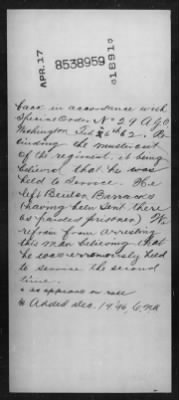 APR. 17
8538959
1891
back in accordance with
Special Order No 29 A.G.O.
Washington Feb 26th 62.
the muster out
of the regiment, it being
believed that he was
held to service. He
left Benton Barracks
(having been sent there
as paroled prisoner) We
refrain from arresting
this man believing that
he was erroneously held
to service the second
time.
* as appears on roll
Added Dec. 19 '96,